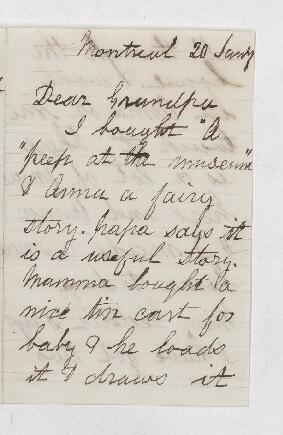 Montreal 20 Jany
Dear Grandpa
I bought "A
"peep at the museum"
& Anna a fairy
story. papa says it
is a useful story.
Mamma bought a
nice tin cart for
baby & he loads
it & draws it